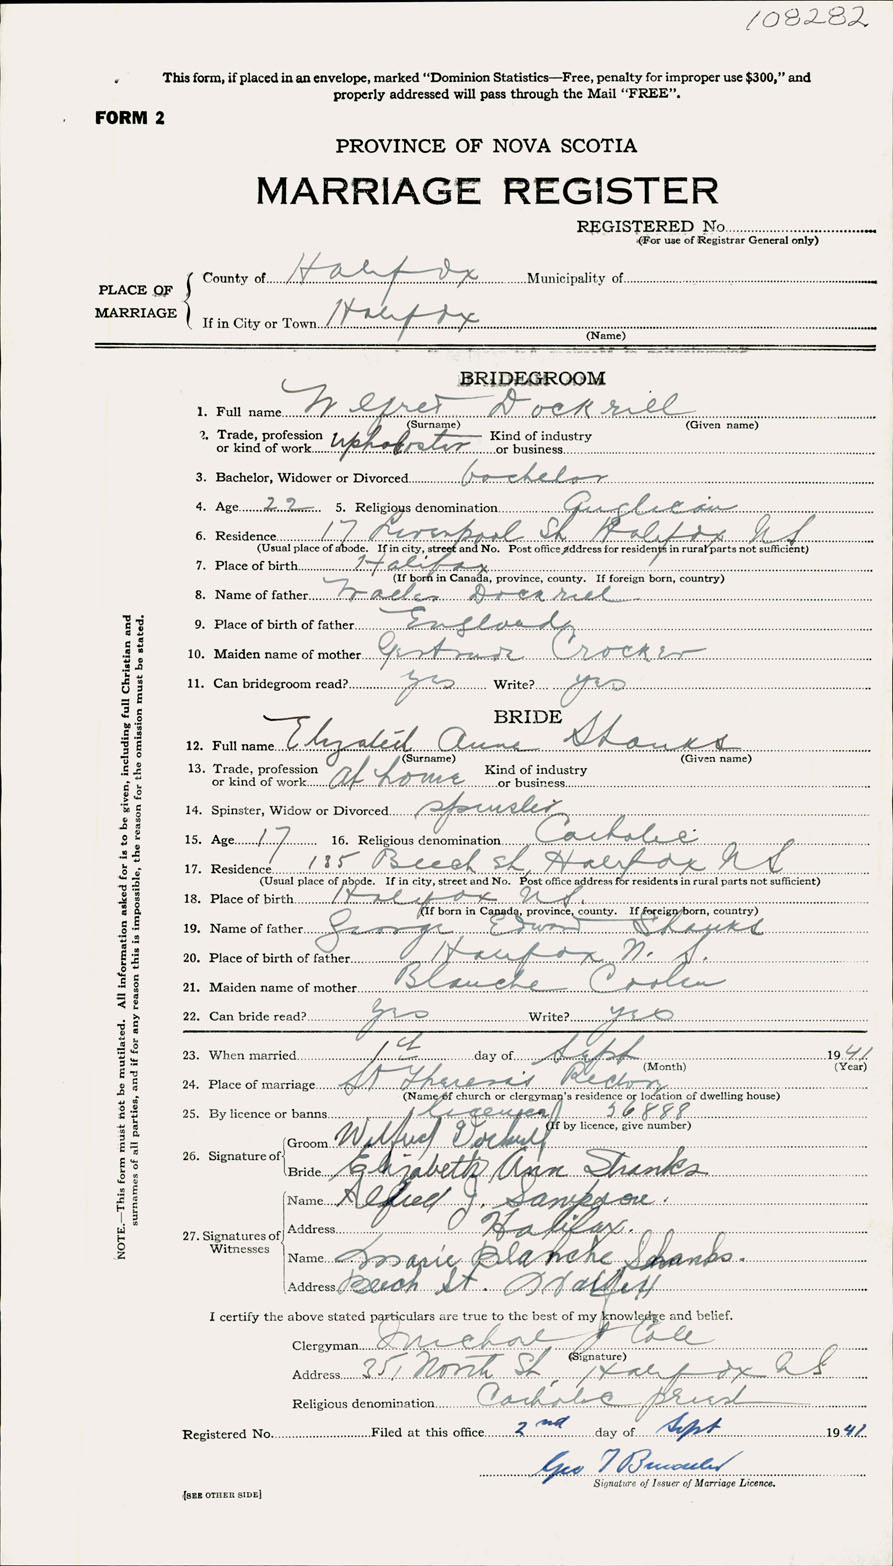 108282
This form, if placed in an envelope, marked "Dominion Statistics—Free, penalty for improper use $300," and
properly addressed will pass through the Mail "FREE".
FORM 2
PROVINCE OF NOVA SCOTIA
MARRIAGE REGISTER
REGISTERED No.
(For use of Registrar General only)
PLACE OF MARRIAGE
County of Halifax Municipality of
If in City or Town Halifax
(Name)
BRIDEGROOM
1. Full name Wilfred Dockrill
(Surname) (Given name)
2. Trade, profession or kind of work upholster Kind of industry or business
3. Bachelor, Widower or Divorced bachelor
4. Age 22 5. Religious denomination Anglican
6. Residence 17 Liverpool St Halifax NS
(Usual place of abode. If in city, street and No. Post office address for residents in rural parts not sufficient)
7. Place of birth Halifax
(If born in Canada, province, county. If foreign born, country)
8. Name of father Walter Dockrill
9. Place of birth of father England
10. Maiden name of mother Gertrude Crocker
11. Can bridegroom read? yes Write? yes
BRIDE
12. Full name Elizabeth Anne Shanks
(Surname) (Given name)
13. Trade, profession or kind of work at home Kind of industry or business
14. Spinster, Widow or Divorced spinster
15. Age 17 16. Religious denomination Catholic
17. Residence 185 Beech St, Halifax NS
(Usual place of abode. If in city, street and No. Post office address for residents in rural parts not sufficient)
18. Place of birth Halifax NS.
(If born in Canada, province, county. If foreign born, country)
19. Name of father George Edward Shanks
20. Place of birth of father Halifax N. S.
21. Maiden name of mother Blanche Coolen
22. Can bride read? yes Write? yes
23. When married 1st day of Sept 1941
(Month) (Year)
24. Place of marriage St Theresa's Rectory
(Name of church or clergyman's residence or location of dwelling house)
25. By licence or banns licence 56888
(If by licence, give number)
26. Signature of
Groom Wilfred Dockrill
Bride Elizabeth Ann Shanks
27. Signatures of Witnesses
Name Alfred J. Sampson.
Address Halifax.
Name Marie Blanche Shanks.
Address Beech St. Halifax
I certify the above stated particulars are true to the best of my knowledge and belief.
Clergyman Michael J Cole
(Signature)
Address 351 North St, Halifax NS
Religious denomination Catholic priest
Registered No. Filed at this office 2nd day of Sept 1941
Geo T
Signature of Issuer of Marriage Licence.
[SEE OTHER SIDE]
NOTE.—This form must not be mutilated. All information asked for is to be given, including full Christian and
surnames of all parties, and if for any reason this is impossible, the reason for the omission must be stated.